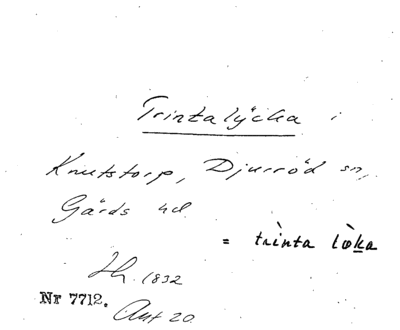 Trintalycka i
Knutstorp, Djurröd sn,
Gärds hd
= trìnta lòka
Lh. 1832
Nr 7712.
Ant 20